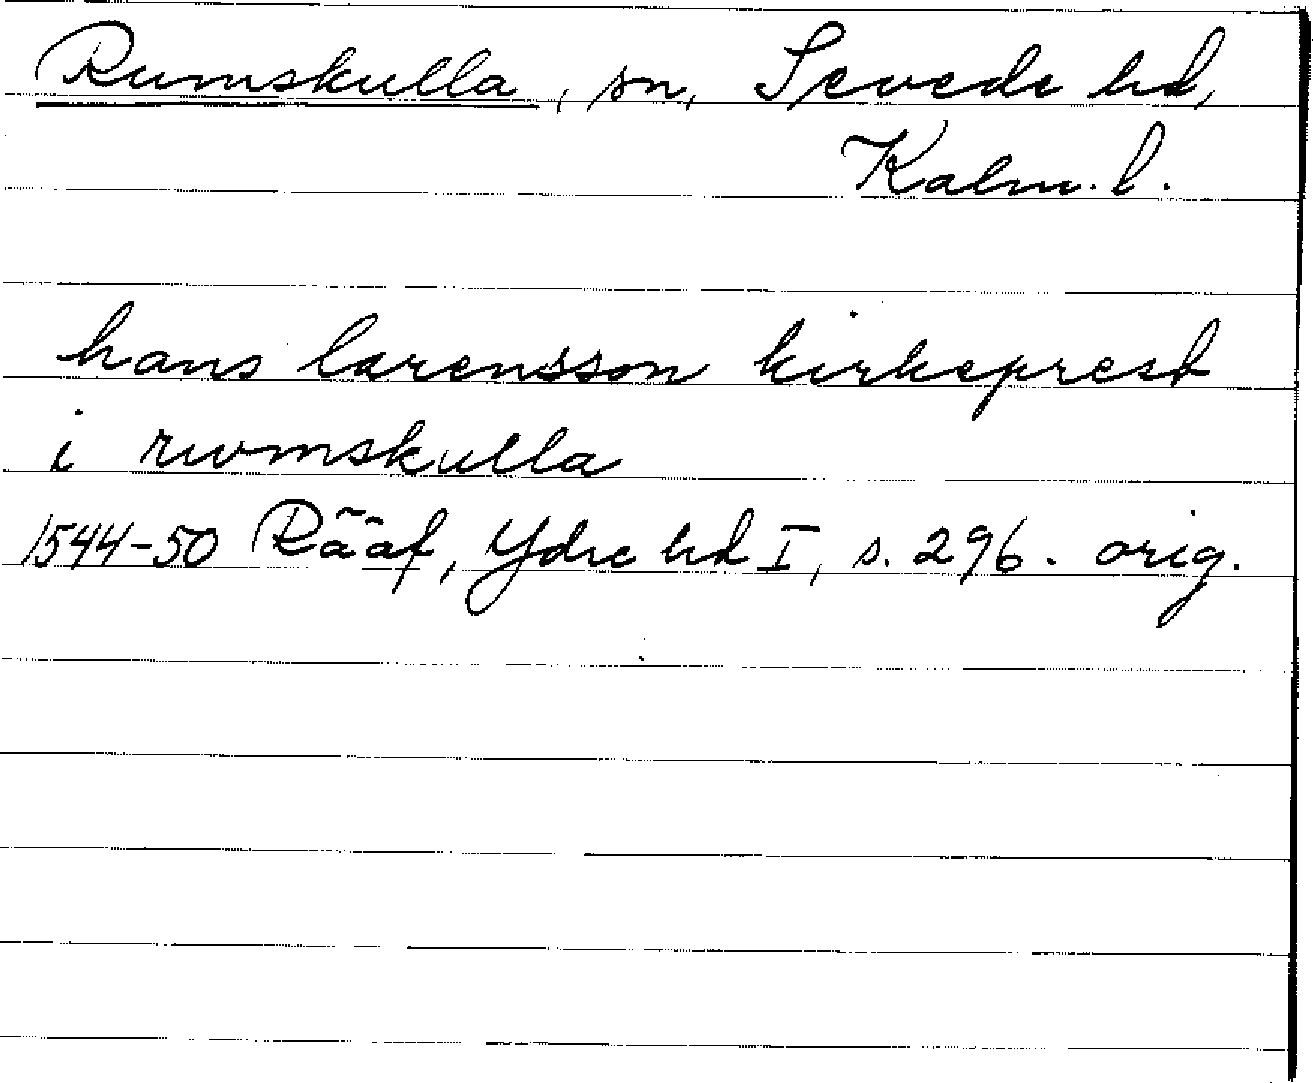 Rumskulla, sn, Sevede hd,
Kalm. l.
hans larensson kirkeprest
i rwmskulla
1544-50 Rääf, Ydre hd I, s. 296. orig.